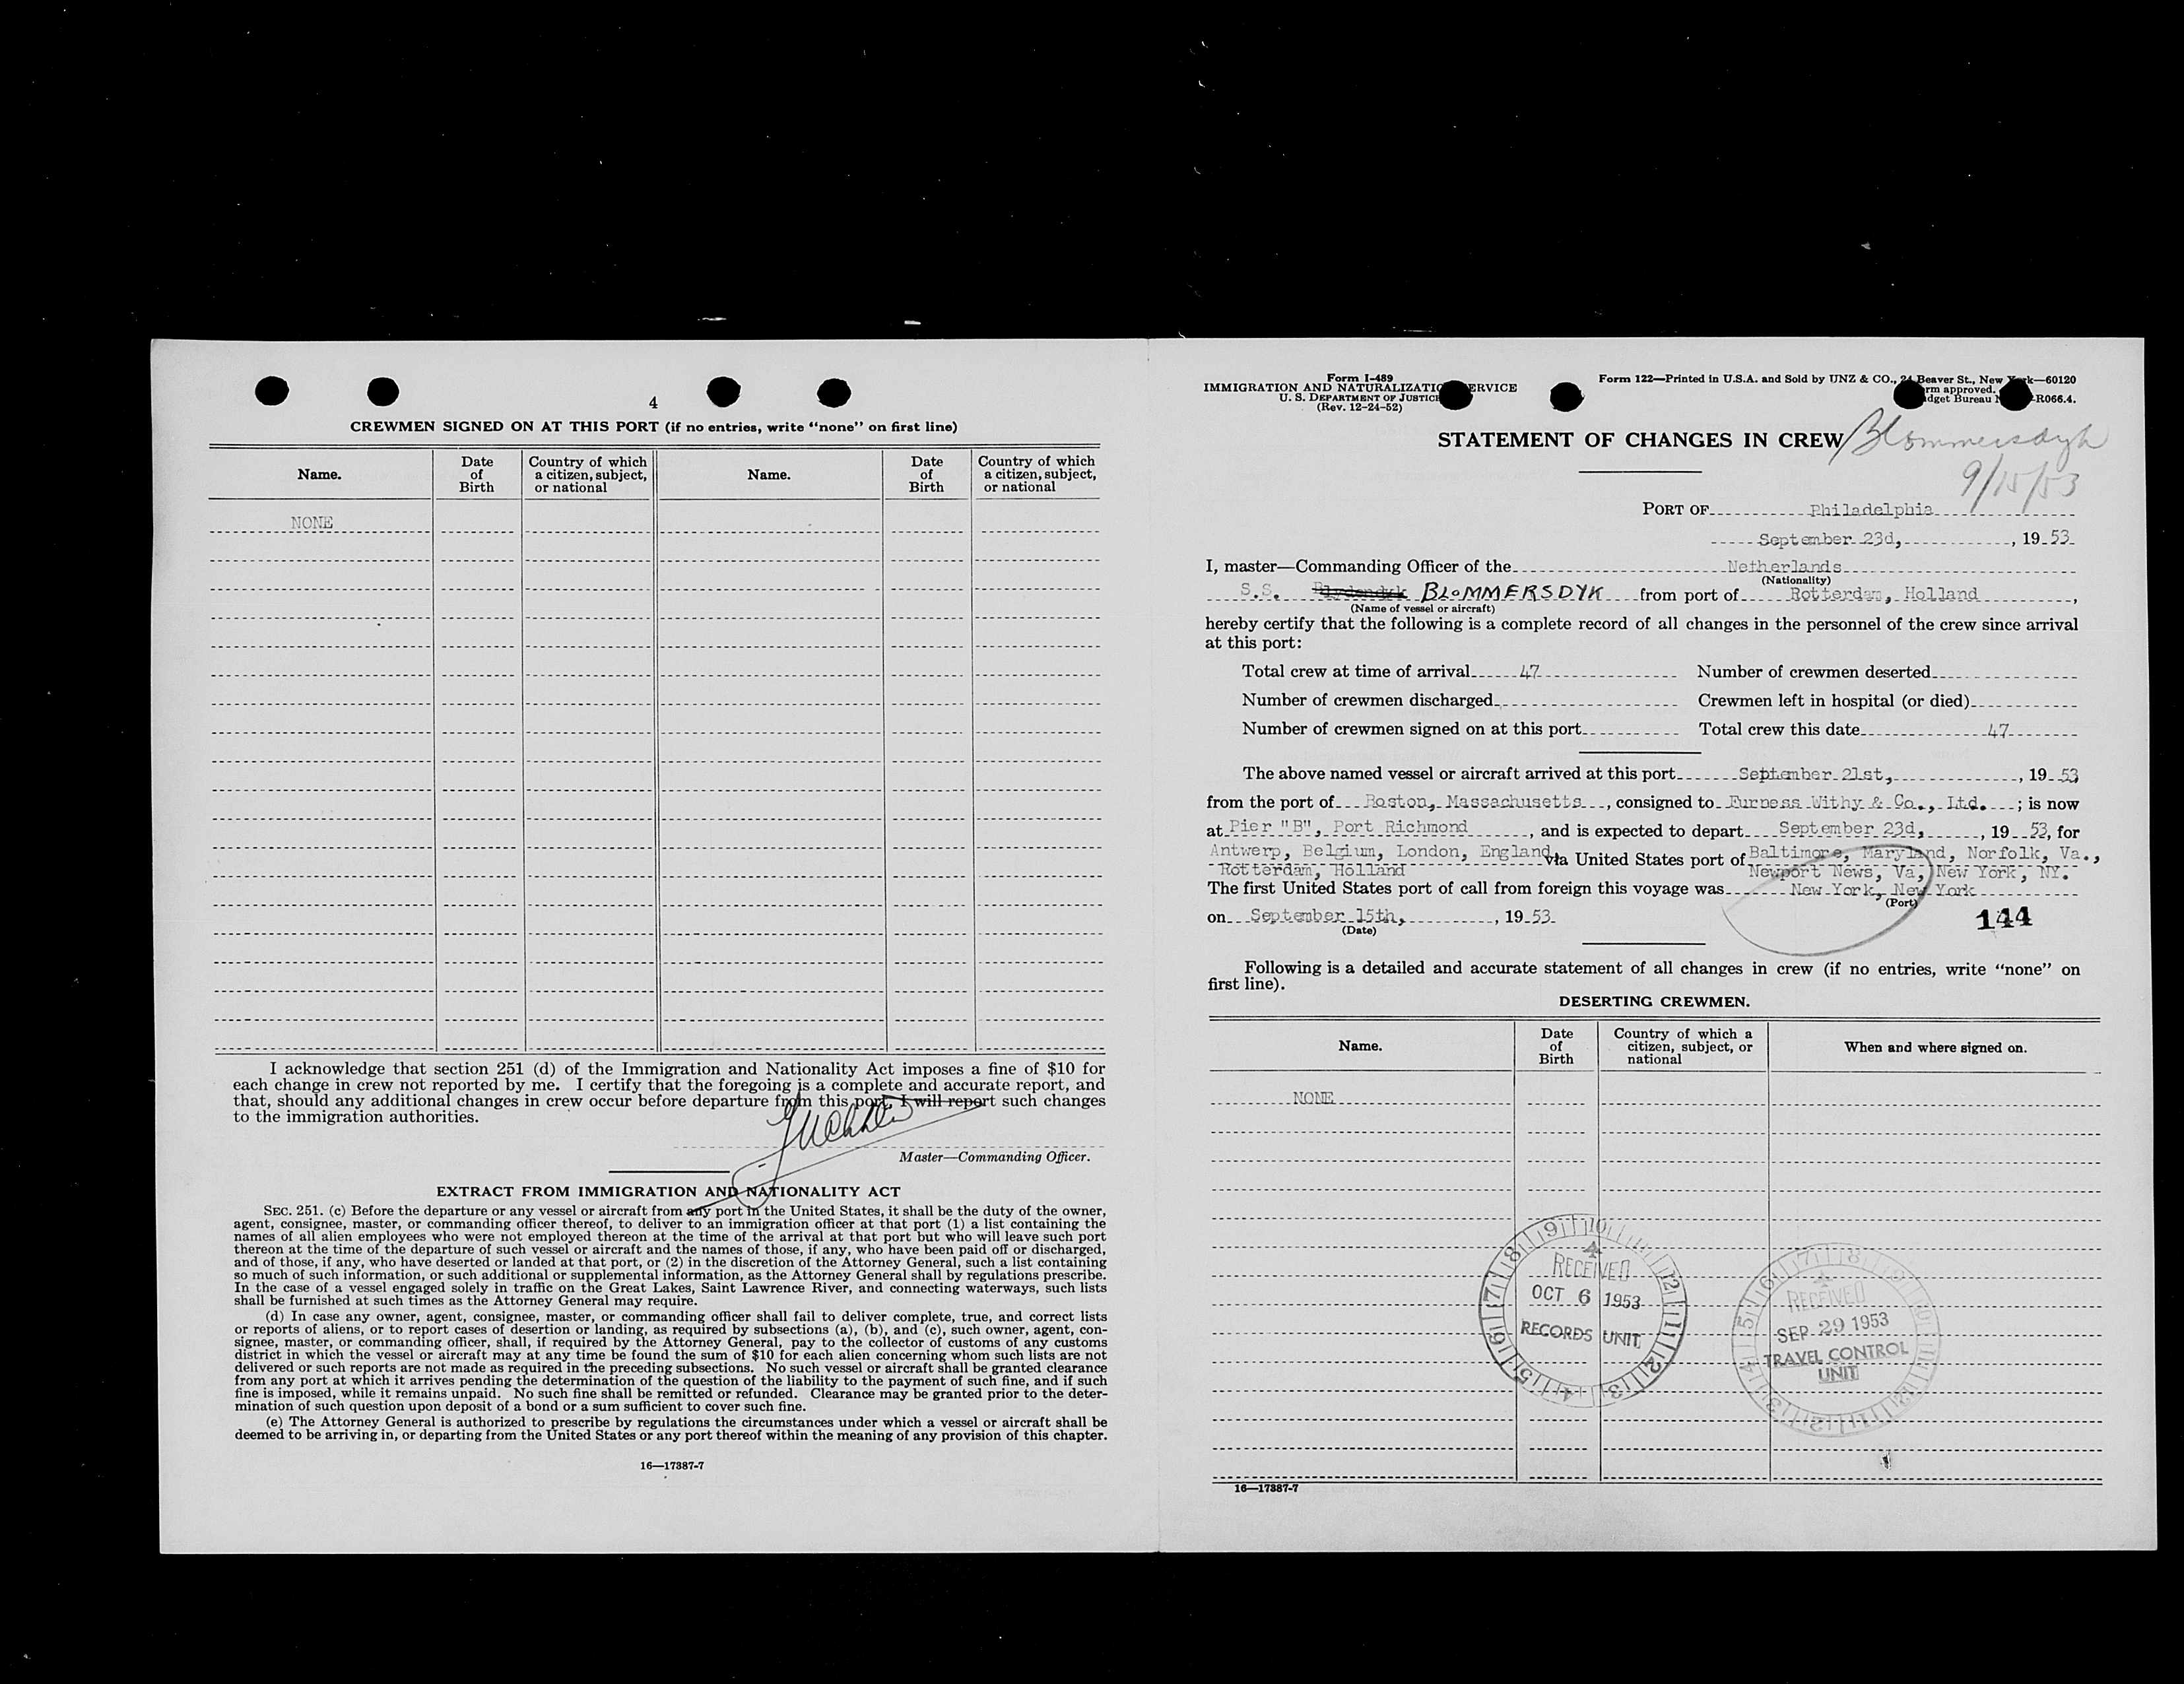 4
CREWMEN SIGNED ON AT THIS PORT (if no entries, write "none" on first line)
Name. Date of Birth Country of which a citizen, subject, or national Name. Date of Birth Country of which a citizen, subject, or national
NONE
I acknowledge that section 251 (d) of the Immigration and Nationality Act imposes a fine of $10 for
each change in crew not reported by me. I certify that the foregoing is a complete and accurate report, and
that, should any additional changes in crew occur before departure from this port, I will report such changes
to the immigration authorities.
Master—Commanding Officer.
EXTRACT FROM IMMIGRATION AND NATIONALITY ACT
SEC. 251. (c) Before the departure or any vessel or aircraft from any port in the United States, it shall be the duty of the owner,
agent, consignee, master, or commanding officer thereof, to deliver to an immigration officer at that port (1) a list containing the
names of all alien employees who were not employed thereon at the time of the arrival at that port but who will leave such port
thereon at the time of the departure of such vessel or aircraft and the names of those, if any, who have been paid off or discharged,
and of those, if any, who have deserted or landed at that port, or (2) in the discretion of the Attorney General, such a list containing
so much of such information, or such additional or supplemental information, as the Attorney General shall by regulations prescribe.
In the case of a vessel engaged solely in traffic on the Great Lakes, Saint Lawrence River, and connecting waterways, such lists
shall be furnished at such times as the Attorney General may require.
(d) In case any owner, agent, consignee, master, or commanding officer shall fail to deliver complete, true, and correct lists
or reports of aliens, or to report cases of desertion or landing, as required by subsections (a), (b), and (c), such owner, agent, con-
signee, master, or commanding officer, shall, if required by the Attorney General, pay to the collector of customs of any customs
district in which the vessel or aircraft may at any time be found the sum of $10 for each alien concerning whom such lists are not
delivered or such reports are not made as required in the preceding subsections. No such vessel or aircraft shall be granted clearance
from any port at which it arrives pending the determination of the question of the liability to the payment of such fine, and if such
fine is imposed, while it remains unpaid. No such fine shall be remitted or refunded. Clearance may be granted prior to the deter-
mination of such question upon deposit of a bond or a sum sufficient to cover such fine.
(e) The Attorney General is authorized to prescribe by regulations the circumstances under which a vessel or aircraft shall be
deemed to be arriving in, or departing from the United States or any port thereof within the meaning of any provision of this chapter.
16—17387-7
Form I-489
IMMIGRATION AND NATURALIZATIO ERVICE
U. S. DEPARTMENT OF JUSTIC
(Rev. 12-24-52)
Form 122—Printed in U.S.A. and Sold by UNZ & CO., 24 Beaver St., New York—60120
rm approved.
dget Bureau N -R066.4.
STATEMENT OF CHANGES IN CREW
Blommersdyk
9/15/53
PORT OF Philadelphia
September 23d, , 19 53
I, master—Commanding Officer of the Netherlands
(Nationality)
S.S. BLOMMERSDYK from port of Rotterdam, Holland ,
(Name of vessel or aircraft)
hereby certify that the following is a complete record of all changes in the personnel of the crew since arrival
at this port:
Total crew at time of arrival 47 Number of crewmen deserted
Number of crewmen discharged Crewmen left in hospital (or died)
Number of crewmen signed on at this port Total crew this date 47
The above named vessel or aircraft arrived at this port September 21st, , 19 53
from the port of Boston, Massachusetts , consigned to Furness Withy & Co., Ltd. ; is now
at Pier "B", Port Richmond , and is expected to depart September 23d, , 19 53, for
Antwerp, Belgium, London, England, via United States port of Baltimore, Maryland, Norfolk, Va.,
Rotterdam, Holland Newport News, Va, New York, NY.
The first United States port of call from foreign this voyage was New York, New York
(Port)
on September 15th, , 19 53
(Date)
144
Following is a detailed and accurate statement of all changes in crew (if no entries, write "none" on
first line).
DESERTING CREWMEN.
Name. Date of Birth Country of which a citizen, subject, or national When and where signed on.
NONE
RECEIVED
OCT 6 1953
RECORDS UNIT
RECEIVED
SEP 29 1953
TRAVEL CONTROL
UNIT
16—17387-7